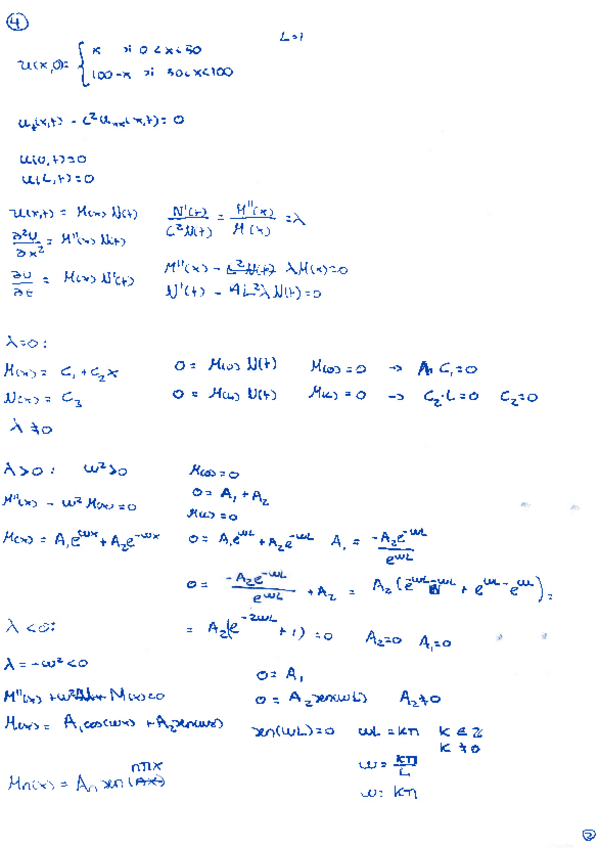 ④
L=1
u(x,0)= { x si 0<x<50
100-x si 50<x<100
u_t(x,t) - c²u_xx(x,t)=0
u(0,t)=0
u(L,t)=0
u(x,t) = M(x) N(t)   N'(t)/(c²N(t)) = M''(x)/M(x) = λ
∂²u/∂x² = M''(x) N(t)
∂u/∂t = M(x) N'(t)
M''(x) - λM(x)=0
N'(t) - c²λN(t)=0
λ=0:
M(x) = C₁+C₂x   0 = M(0) N(t)   M(0)=0 → C₁=0
N(x) = C₃   0 = M(L) N(t)   M(L)=0 → C₂·L=0   C₂=0
λ≠0
λ>0:   ω²>0   M(0)=0
0=A₁+A₂
M''(x) - ω²M(x)=0   M(L)=0
M(x) = A₁e^{ωx}+A₂e^{-ωx}   0=A₁e^{ωL}+A₂e^{-ωL}   A₁ = -A₂e^{-ωL}/e^{ωL}
0 = -A₂e^{-ωL}/e^{ωL} + A₂ = A₂(e^{-ωL-ωL} + e^{ωL-ωL}) =
λ<0:   = A₂(e^{-2ωL}+1)=0   A₂=0   A₁=0
λ=-ω²<0   0=A₁
M''(x)+ω²M(x)=0   0=A₂sen(ωL)   A₂≠0
M(x)= A₁cos(ωx)+A₂sen(ωx)   sen(ωL)=0   ωL=kπ   k∈Z
k≠0
ω=kπ/L
Mn(x) = An sen(nπx)
ω=kπ
②